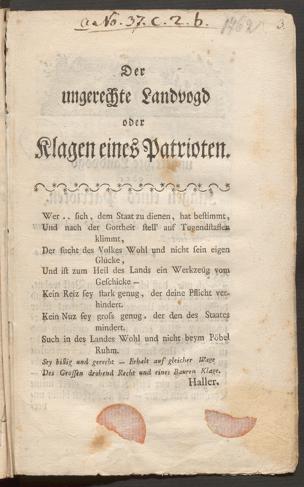 a a No. 37. c. 2. b.
1762
3.
Der
ungerechte Landvogd
oder
Klagen eines Patrioten.
Wer .. sich, dem Staat zu dienen, hat bestimmt,
Und nach der Gottheit stell' auf Tugendstaffen
klimmt,
Der sucht des Volkes Wohl und nicht sein eigen
Glücke,
Und ist zum Heil des Lands ein Werkzeug vom
Geschicke —
Kein Reiz sey stark genug, der deine Pflicht ver-
hindert.
Kein Nuz sey gross genug, der den des Staates
mindert.
Such in des Landes Wohl und nicht beym Pöbel
Ruhm.
Sey billig und gerecht — Erhalt auf gleicher Wage
— Des Grossen drohend Recht und eines Bauren Klage.
Haller.